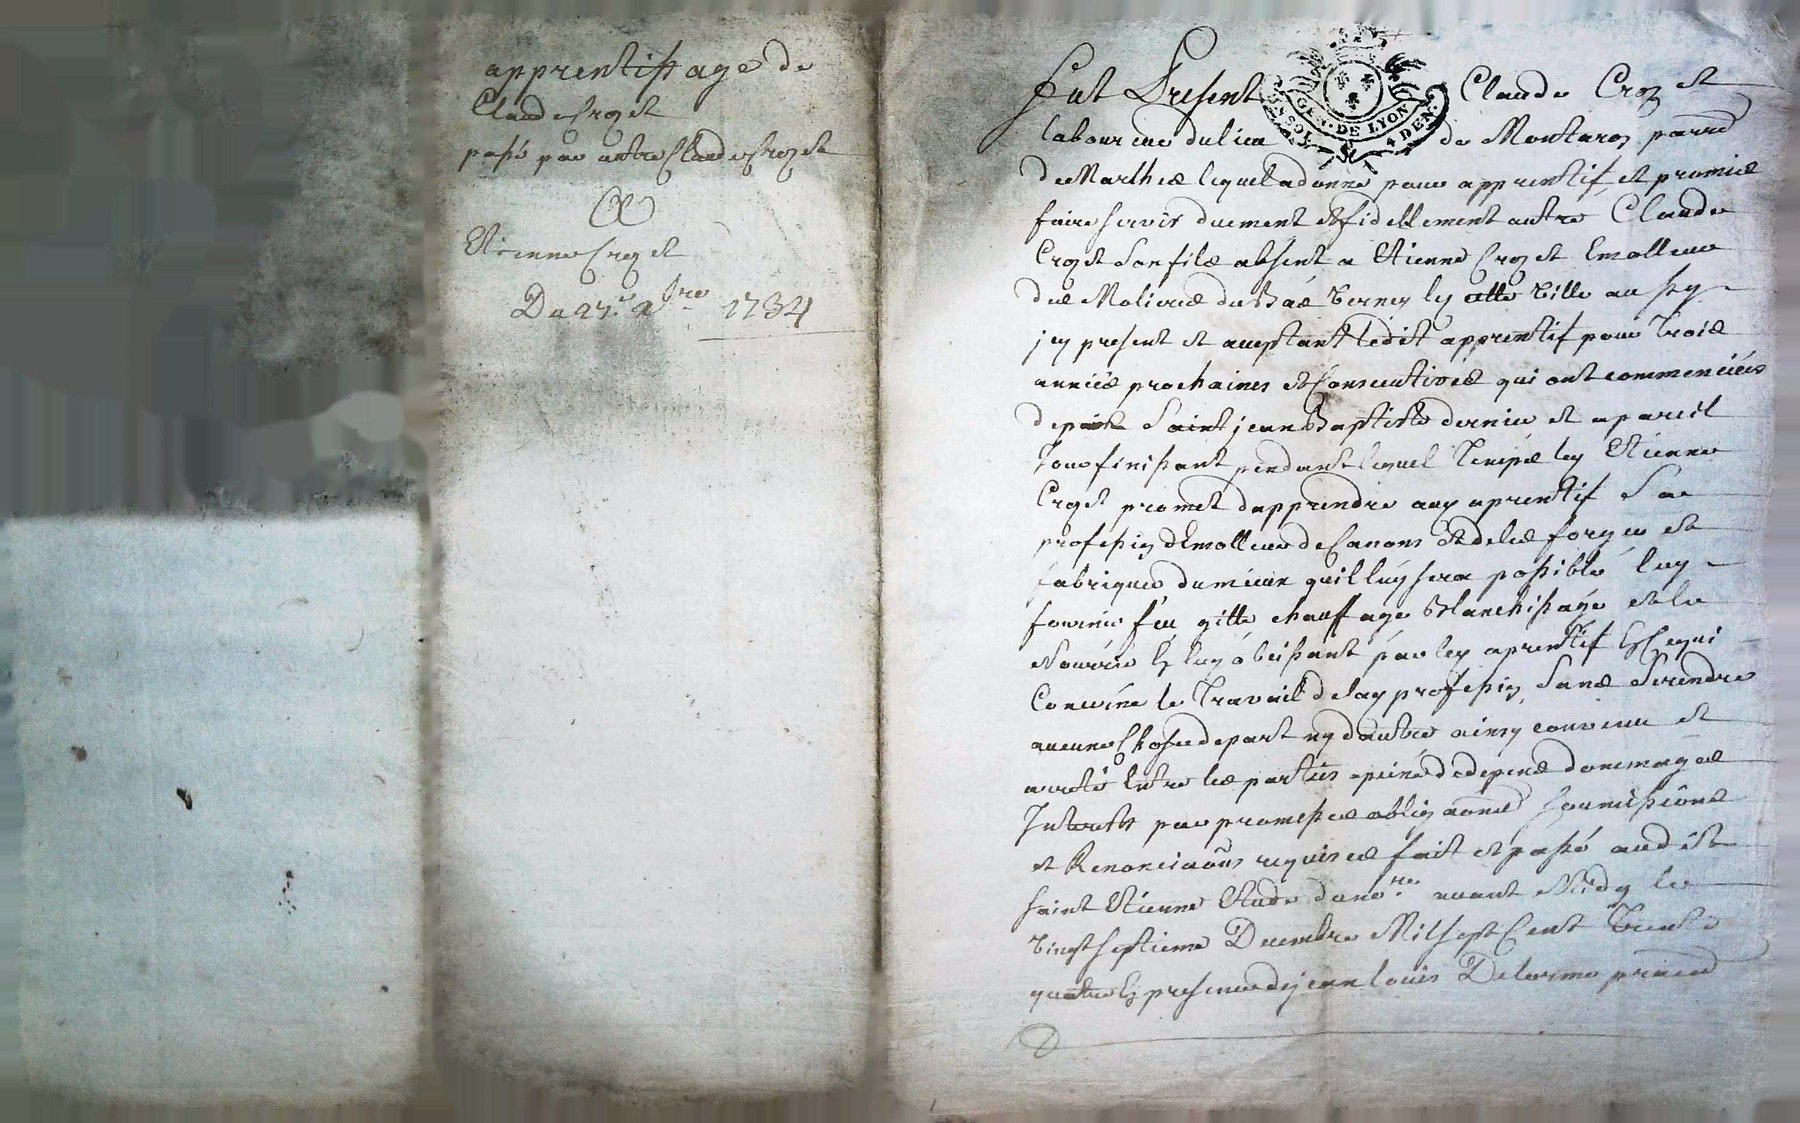 apprentissage de
Claude Crozet
passé par autre Claude Crozet
A
Etienne Crozet
Du 27.e xbre 1734
GEN. DE LYON
SIX SOLS 4 DEN.
Fut Present Claude Crozet
laboureur du lieu de Montaroz parroisse
de Marlhes lequel a donné pour apprentif et promis
faire servir duement et fidellement autre Claude
Crozet son fils absent a Etienne Crozet Emolleur
des Molieres du Bas Verney en cette Ville au sy
icy present et aceptant ledit apprentif pour trois
années prochaines et Consecutives qui ont commencées
depuis Saint jean Baptiste dernier et a pareil
Jour finissant pendant lequel temps ley Etienne
Crozet promet dapprendre auy aprentif Sa
profession dEmolleur de Canons et de les forger et
fabriquer du mieux quil luy sera possible luy
fournir feu gitte chauffage Blanchissage et le
Nourrir En luy obeissant par ley aprentif En Ce qui
Concerne le travail de Say profession Sans Se rendre
aucune Chose de part ny dautre ainsy convenu et
arreté Entre les parties a peine de depens dommages
Interets par promesses obligaons soumissions
et Renonciaons requises fait et passé audit
Saint Etienne Etude du no.re avant Midy le
vingt septieme Decembre Mil Sept Cent Trente
quatre En presence de jean louis Delorme praticien